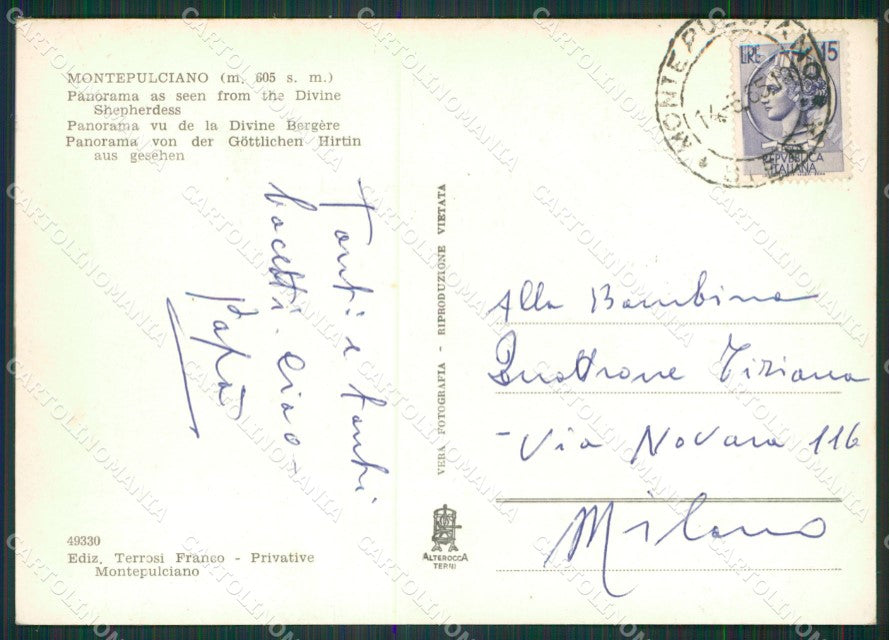 MONTEPULCIANO (m. 605 s. m.)
Panorama as seen from the Divine
Shepherdess
Panorama vu de la Divine Bergère
Panorama von der Göttlichen Hirtin
aus gesehen
Tanti e tanti
bacetti. Ciao
Papà
49330
Ediz. Terrosi Franco - Privative
Montepulciano
VERA FOTOGRAFIA - RIPRODUZIONE VIETATA
ALTEROCCA
TERNI
MONTEPULCIANO
LIRE 15
REPVBBLICA
ITALIANA
Alla Bambina
Quattrone Tiziana
- Via Novara 116
Milano
CARTOLINOMANIA